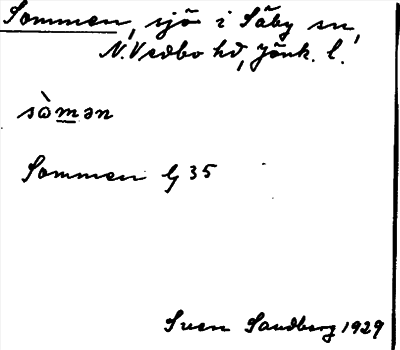 Sommen, sjö i Säby sn,
N. Vedbo hd, Jönk. l.
sòmən
Sommen G 35
Sven Sandberg 1929